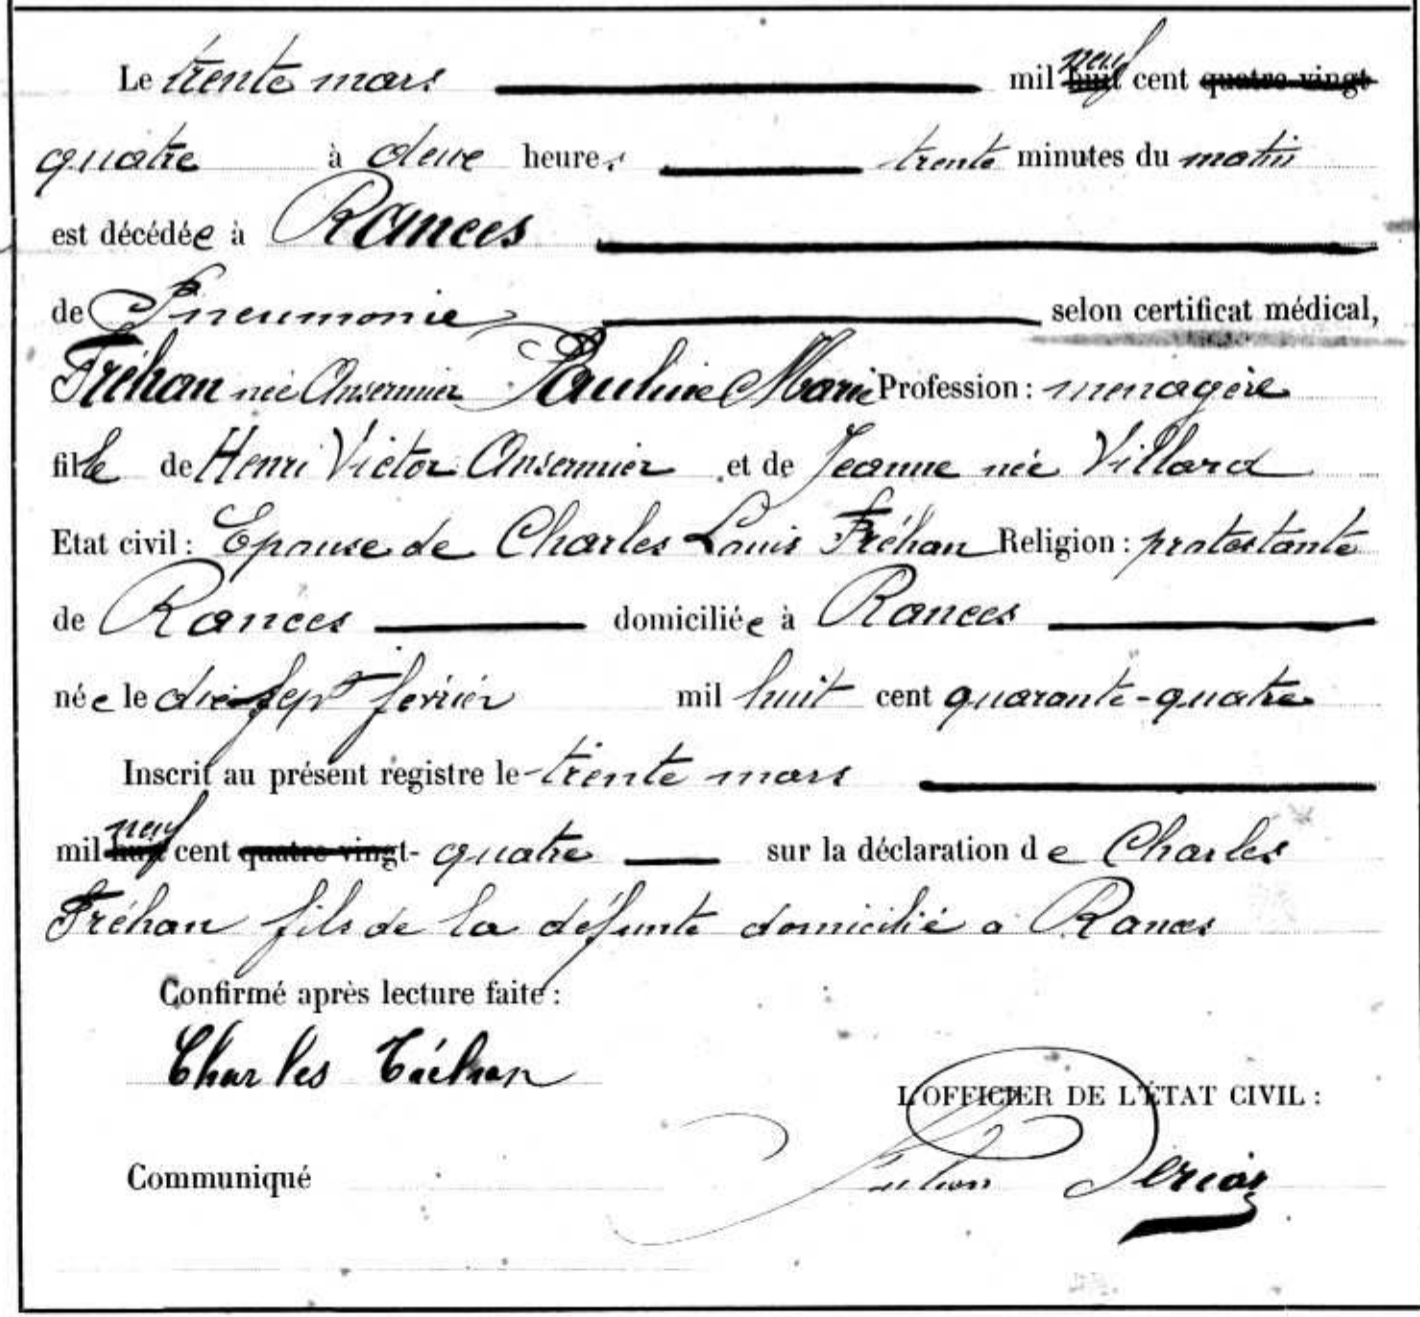 Le trente mars mil neuf cent quatre-vingt
quatre à deux heures trente minutes du matin
est décédée à Rances
de Pneumonie selon certificat médical,
Tréhan née Ansermier Pauline Marie Profession : menagère
fille de Henri Victor Ansermier et de Jeanne née Villard
Etat civil : Epouse de Charles Louis Tréhan Religion : protestante
de Rances domiciliée à Rances
née le dix-sept février mil huit cent quarante-quatre
Inscrit au présent registre le trente mars
mil neuf cent quatre-vingt- quatre sur la déclaration de Charles
Tréhan fils de la défunte domicilié a Rances
Confirmé après lecture faite :
Charles Tréhan
L'OFFICIER DE L'ÉTAT CIVIL :
Communiqué